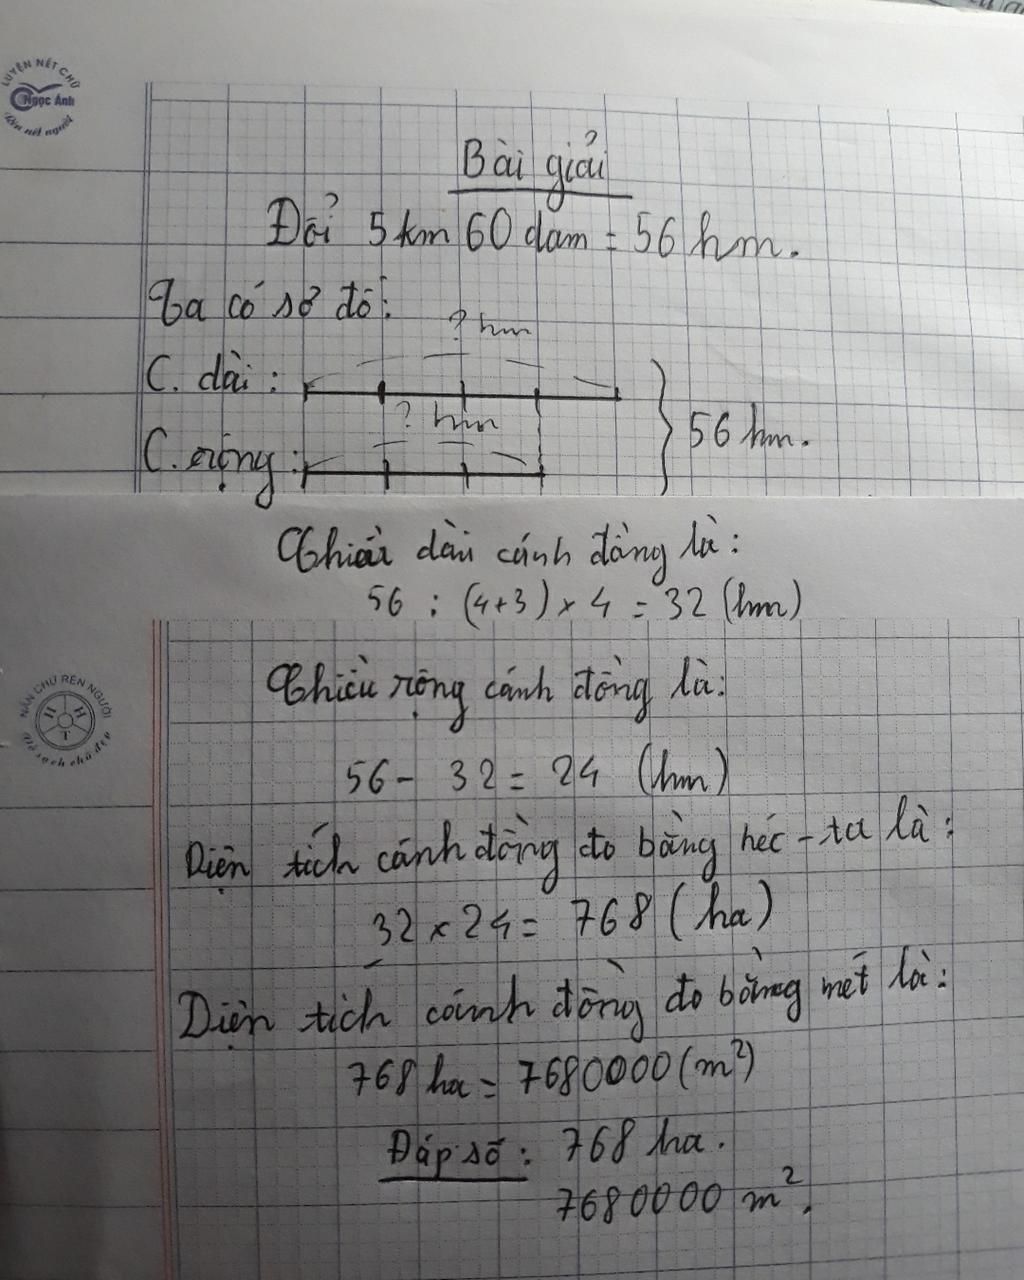 LUYỆN NÉT CHỮ
Ngọc Ánh
Rèn nết người
Bài giải
Đổi 5 km 60 dam = 56 hm.
Ta có sơ đồ:
? hm
C. dài:
? hm
56 hm.
C. rộng:
Chiều dài cánh đồng là:
56 : (4+3) × 4 = 32 (hm)
NẮN CHỮ RÈN NGƯỜI
H H T
Vở sạch chữ đẹp
Chiều rộng cánh đồng là:
56 - 32 = 24 (hm)
Diện tích cánh đồng đo bằng héc-ta là:
32 × 24 = 768 (ha)
Diện tích cánh đồng đo bằng mét là:
768 ha = 7680000 (m²)
Đáp số: 768 ha.
7680000 m².